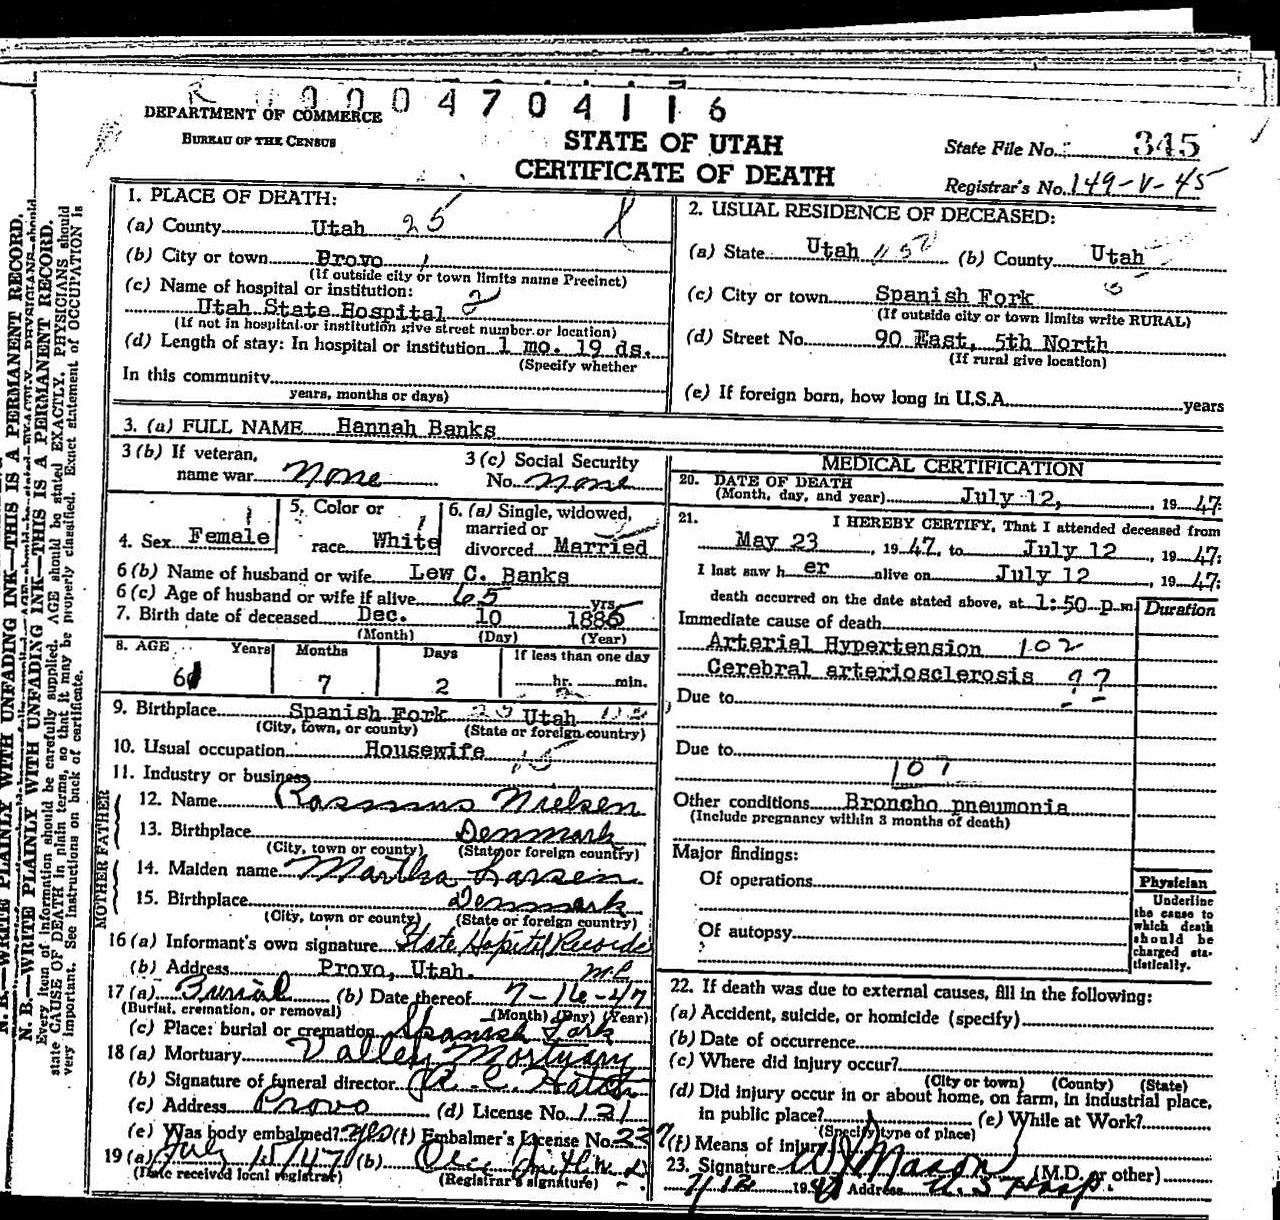 0004704116
DEPARTMENT OF COMMERCE
BUREAU OF THE CENSUS
STATE OF UTAH
CERTIFICATE OF DEATH
State File No. 345
Registrar's No. 149-V-45
1. PLACE OF DEATH:
(a) County Utah 25
(b) City or town Provo
(If outside city or town limits name Precinct)
(c) Name of hospital or institution:
Utah State Hospital 2
(If not in hospital or institution give street number or location)
(d) Length of stay: In hospital or institution 1 mo. 19 ds.
(Specify whether
In this community
years, months or days)
2. USUAL RESIDENCE OF DECEASED:
(a) State Utah (b) County Utah
(c) City or town Spanish Fork
(If outside city or town limits write RURAL)
(d) Street No. 90 East, 5th North
(If rural give location)
(e) If foreign born, how long in U.S.A. years
3. (a) FULL NAME Hannah Banks
3 (b) If veteran, name war None
3 (c) Social Security No. None
4. Sex Female
5. Color or race White
6. (a) Single, widowed, married or divorced Married
6 (b) Name of husband or wife Lew C. Banks
6 (c) Age of husband or wife if alive 65 yrs.
7. Birth date of deceased Dec. 10 1885
(Month) (Day) (Year)
8. AGE Years Months Days If less than one day
61 7 2 hr. min.
9. Birthplace Spanish Fork Utah
(City, town, or county) (State or foreign country)
10. Usual occupation Housewife
11. Industry or business
FATHER
12. Name Rasmus Nielsen
13. Birthplace Denmark
(City, town or county) (State or foreign country)
MOTHER
14. Maiden name Martha Larsen
15. Birthplace Denmark
(City, town or county) (State or foreign country)
16 (a) Informant's own signature State Hospital Records
(b) Address Provo, Utah.
17 (a) Burial (b) Date thereof 7-16-47
(Burial, cremation, or removal) (Month) (Day) (Year)
(c) Place: burial or cremation Spanish Fork
18 (a) Mortuary Valley Mortuary
(b) Signature of funeral director R. C. Hatch
(c) Address Provo (d) License No. 121
(e) Was body embalmed? Yes (f) Embalmer's License No. 337
19 (a) July 15/47 (b)
(Date received local registrar) (Registrar's signature)
MEDICAL CERTIFICATION
20. DATE OF DEATH
(Month, day, and year) July 12, 19 47
21. I HEREBY CERTIFY, That I attended deceased from
May 23, 19 47, to July 12, 19 47;
I last saw her alive on July 12, 19 47;
death occurred on the date stated above, at 1:50 p m
Duration
Immediate cause of death
Arterial Hypertension 102
Cerebral arteriosclerosis
Due to
Due to
107
Other conditions Broncho pneumonia
(Include pregnancy within 3 months of death)
Major findings:
Of operations
Of autopsy
Physician
Underline
the cause to
which death
should be
charged sta-
tistically.
22. If death was due to external causes, fill in the following:
(a) Accident, suicide, or homicide (specify)
(b) Date of occurrence
(c) Where did injury occur?
(City or town) (County) (State)
(d) Did injury occur in or about home, on farm, in industrial place,
in public place? (e) While at Work?
(Specify type of place)
(f) Means of injury
23. Signature W J Mason (M.D. or other)
7/12 19 47 Address U. S. Hosp.
N. B.—WRITE PLAINLY WITH UNFADING INK—THIS IS A PERMANENT RECORD.
Every item of information should be carefully supplied. AGE should be stated EXACTLY. PHYSICIANS should
state CAUSE OF DEATH in plain terms, so that it may be properly classified. Exact statement of OCCUPATION is
very important. See instructions on back of certificate.